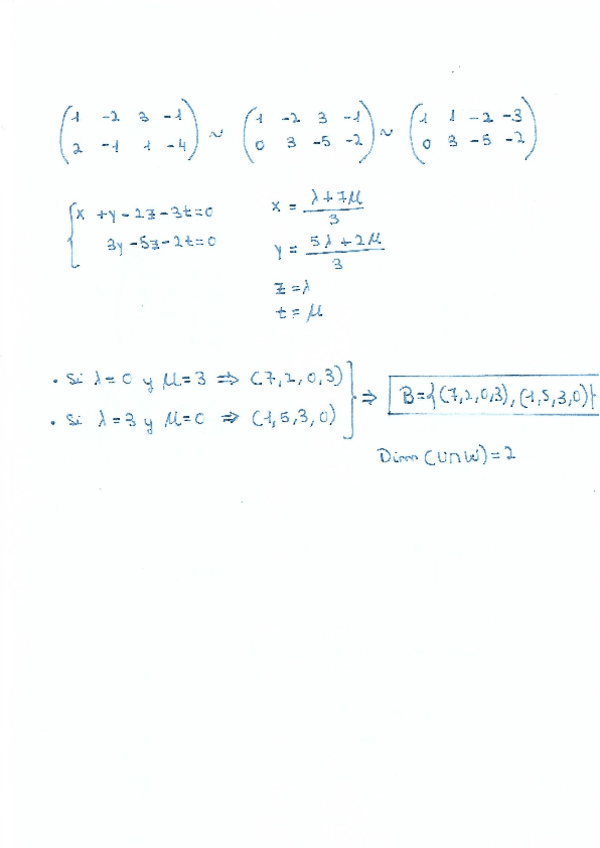 (1 -2 3 -1 ~ (1 -2 3 -1) ~ (1 1 -2 -3)
2 -1 1 -4) (0 3 -5 -2) (0 3 -5 -2)
{x + y - 2z - 3t = 0
3y - 5z - 2t = 0
x = λ + 7μ / 3
y = 5λ + 2μ / 3
z = λ
t = μ
• Si λ = 0 y μ = 3 ⇒ (7, 2, 0, 3)
• Si λ = 3 y μ = 0 ⇒ (1, 5, 3, 0)
} ⇒ B = {(7, 2, 0, 3), (1, 5, 3, 0)}
Dim (U ∩ W) = 2